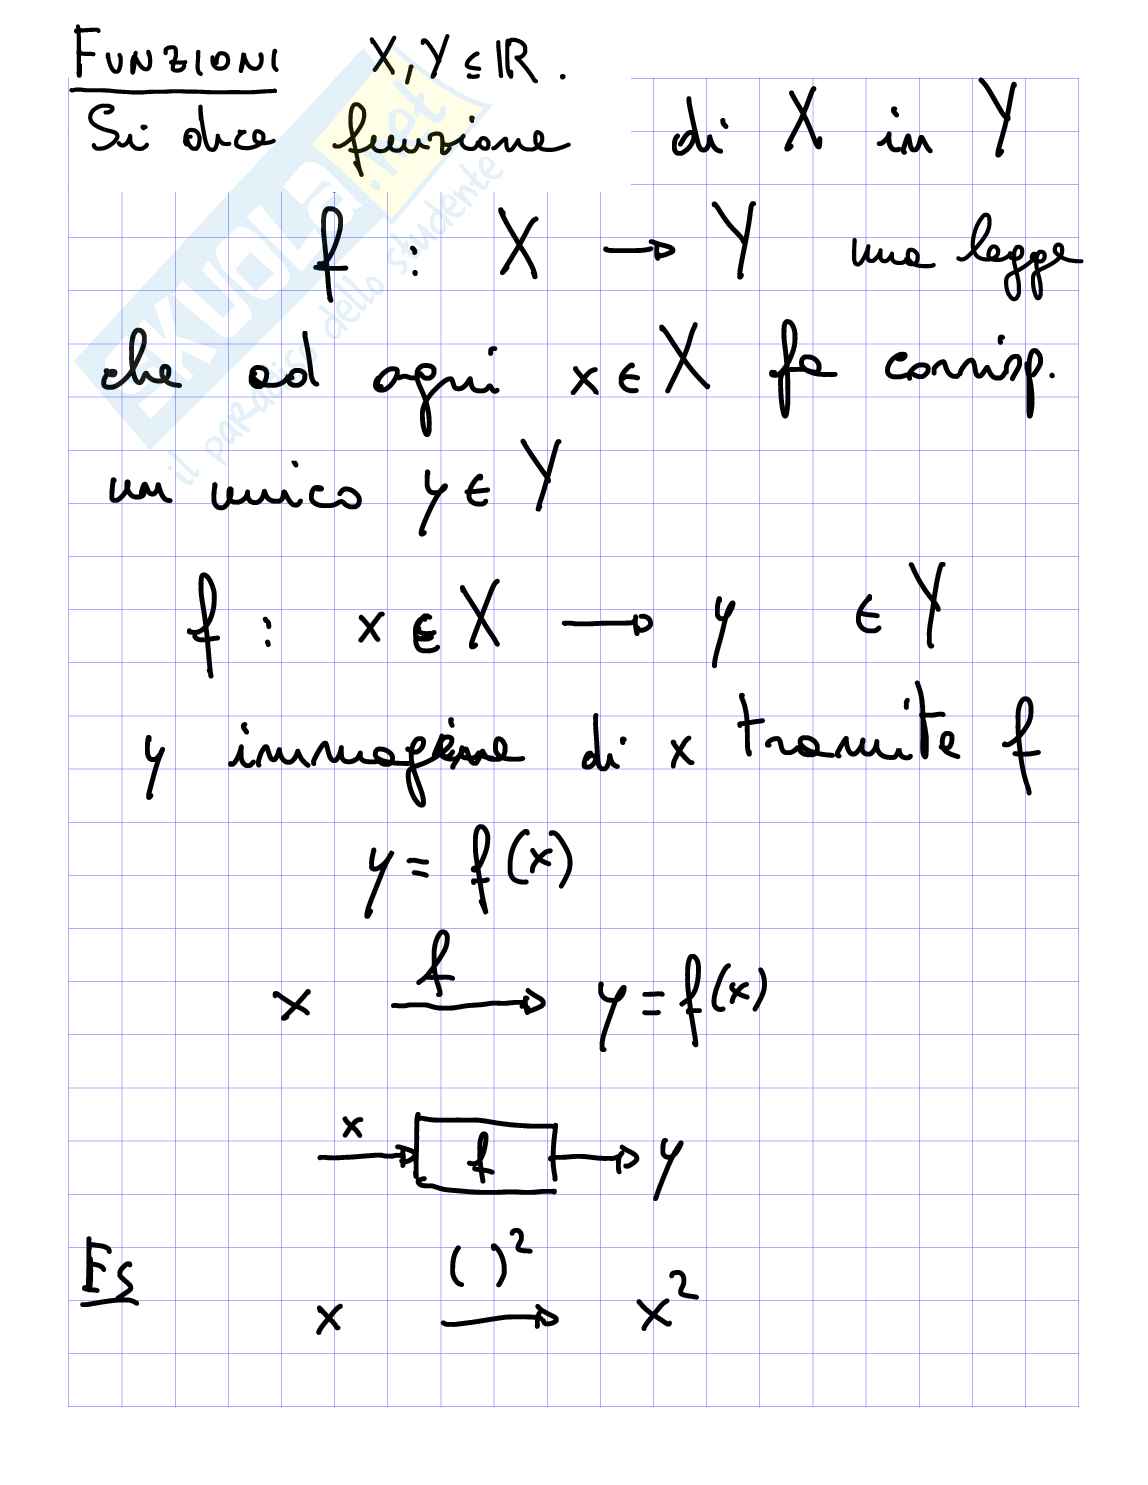 FUNZIONI X, Y ⊆ ℝ.
Si dice funzione di X in Y
f : X → Y una legge
che ad ogni x ∈ X fa corrisp.
un unico y ∈ Y
f : x ∈ X → y ∈ Y
y immagine di x tramite f
y = f(x)
x f→ y = f(x)
x → f → y
Es x ( )²→ x²
SKUOLA.net
il paradiso dello studente